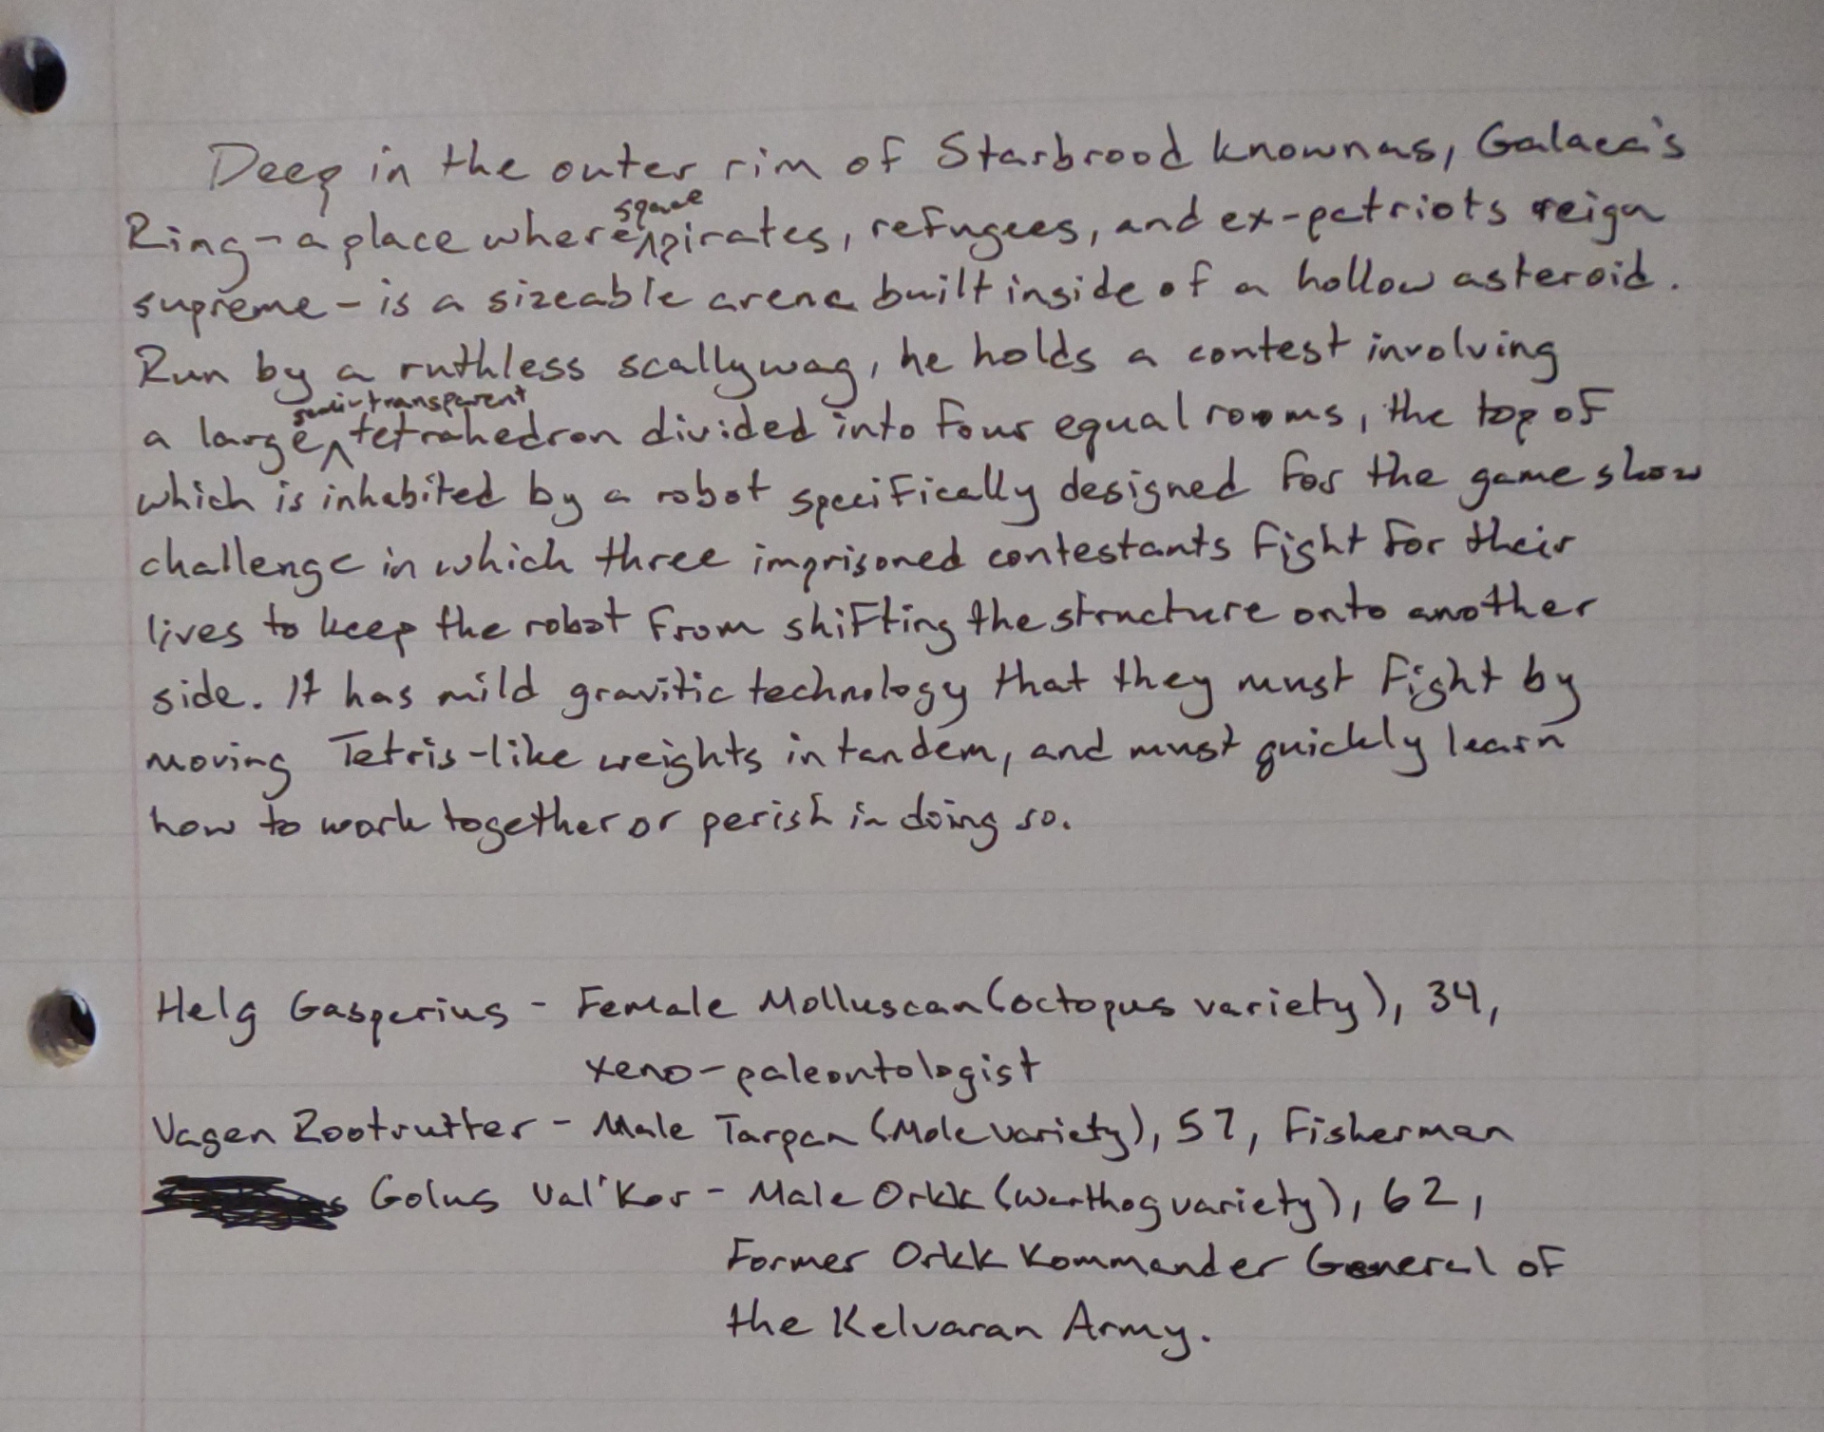 Deep in the outer rim of Starbrood known as, Galaca's
Ring - a place where space pirates, refugees, and ex-patriots reign
supreme - is a sizeable arena built inside of a hollow asteroid.
Run by a ruthless scallywag, he holds a contest involving
a large semi-transparent tetrahedron divided into four equal rooms, the top of
which is inhabited by a robot specifically designed for the game show
challenge in which three imprisoned contestants fight for their
lives to keep the robot from shifting the structure onto another
side. It has mild gravitic technology that they must fight by
moving Tetris-like weights in tandem, and must quickly learn
how to work together or perish in doing so.
Helg Gasperius - Female Molluscan (octopus variety), 34,
xeno-paleontologist
Vagen Rootrutter - Male Tarpan (Mole variety), 57, Fisherman
Golus Val'Kor - Male Orkk (Warthog variety), 62,
Former Orkk Kommander General of
the Kelvaran Army.